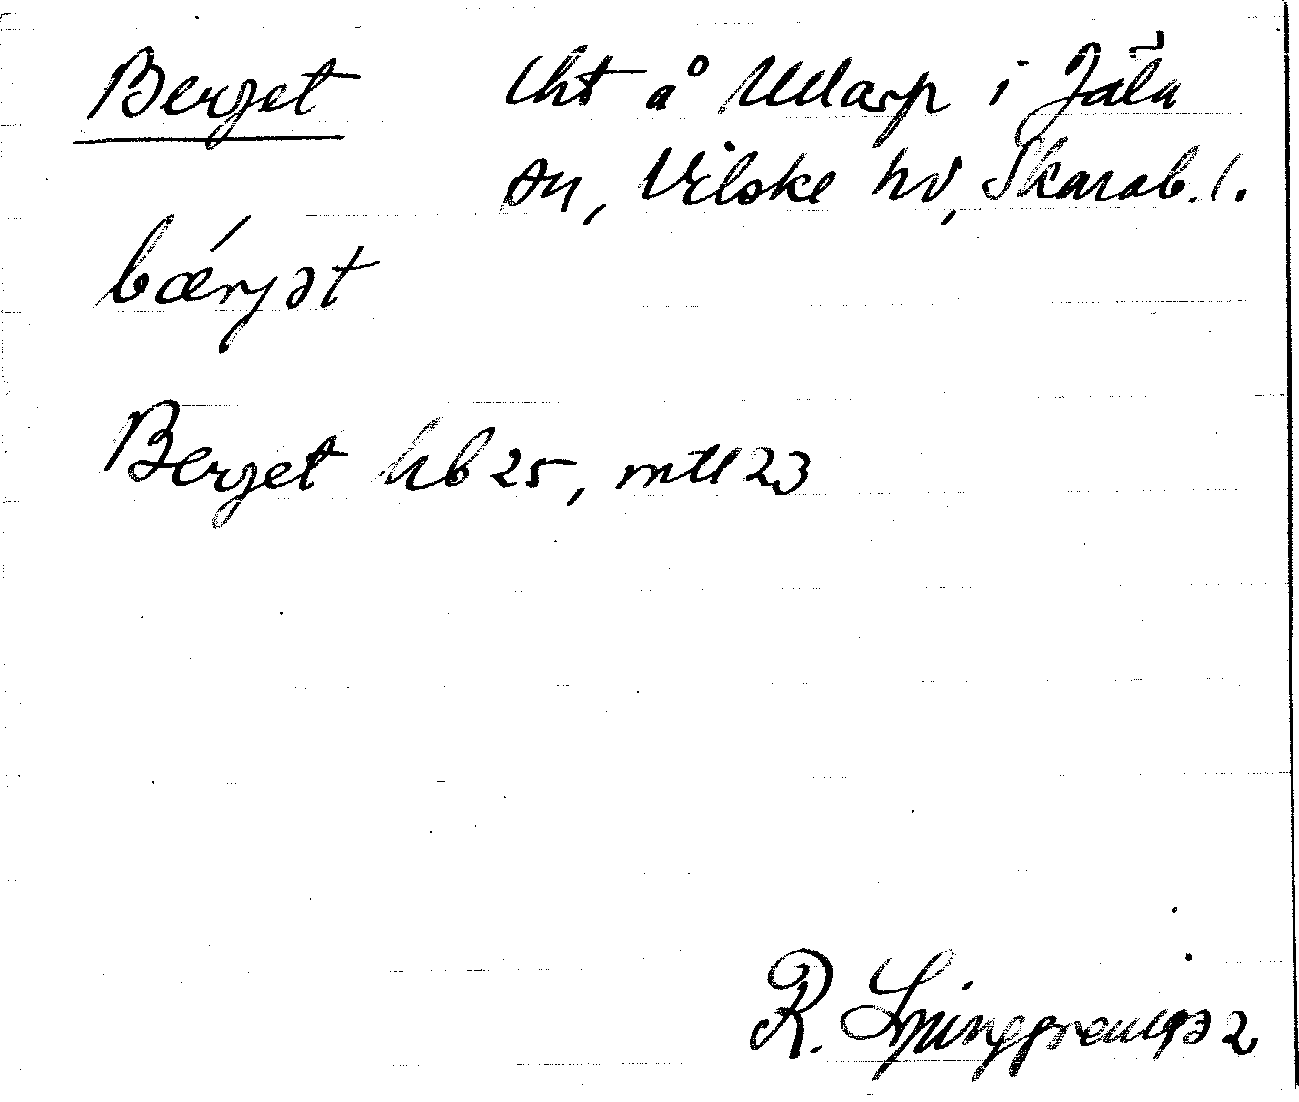 Berget lht å Ullarp i Jäla
sn, Vilske hd, Skarab. l.
bǽrjət
Berget hb 25, mtl 23
R. Ljunggren 1932